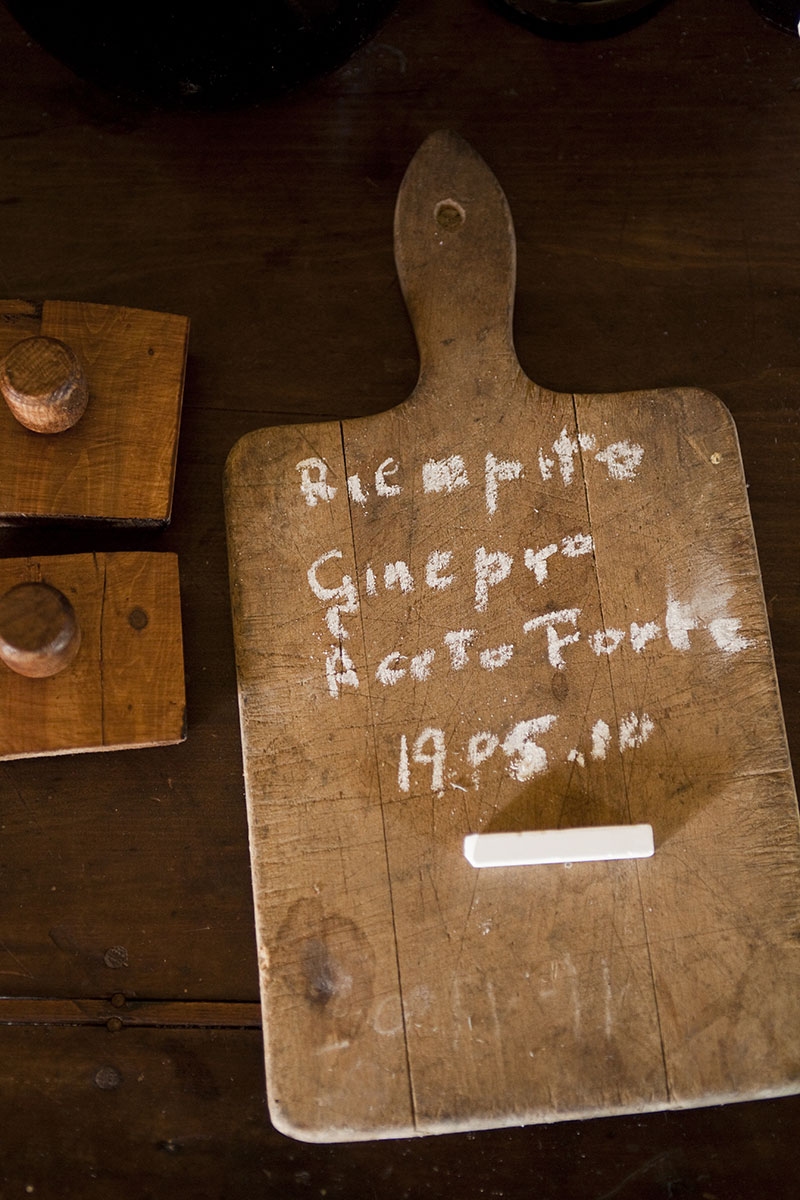 Riempito
Ginepro
E
Aceto Forte
19.05.10